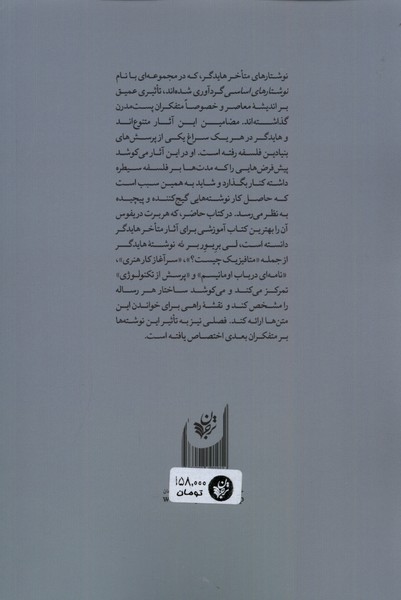 نوشتارهای متأخر هایدگر، که در مجموعه‌ای با نام
نوشتارهای اساسی گردآوری شده‌اند، تأثیری عمیق
بر اندیشهٔ معاصر و خصوصاً متفکران پست‌مدرن
گذاشته‌اند. مضامین این آثار متنوع‌اند
و هایدگر در هر یک سراغ یکی از پرسش‌های
بنیادین فلسفه رفته است. او در این آثار می‌کوشد
پیش‌فرض‌هایی را که مدت‌ها بر فلسفه سیطره
داشته کنار بگذارد و شاید به همین سبب است
که حاصل کار نوشته‌هایی گیج‌کننده و پیچیده
به نظر می‌رسد. در کتاب حاضر، که هربرت دریفوس
آن را بهترین کتاب آموزشی برای آثار متأخر هایدگر
دانسته است، لی بریور بر نه نوشتهٔ هایدگر
از جمله «متافیزیک چیست؟»، «سرآغاز کار هنری»،
«نامه‌ای در باب اومانیسم» و «پرسش از تکنولوژی»
تمرکز می‌کند و می‌کوشد ساختار هر رساله
را مشخص کند و نقشهٔ راهی برای خواندن این
متن‌ها ارائه کند. فصلی نیز به تأثیر این نوشته‌ها
بر متفکران بعدی اختصاص یافته است.
ترجمان
۱۵۸,۰۰۰
تومان